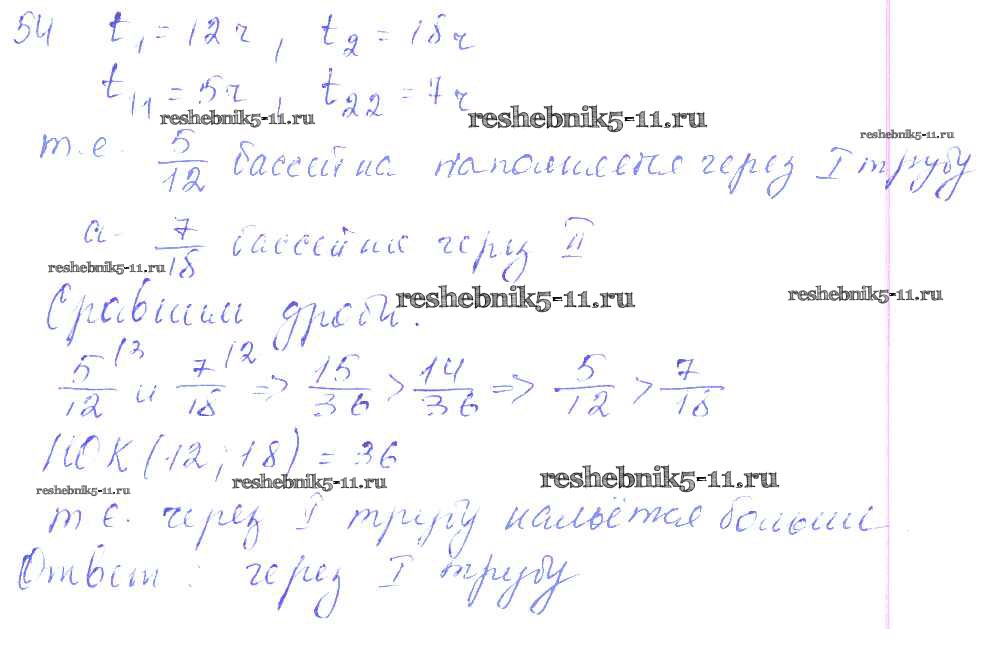 54 t₁ = 12ч, t₂ = 18ч
t₁₁ = 5ч, t₂₂ = 7ч
reshebnik5-11.ru reshebnik5-11.ru
reshebnik5-11.ru
т.е. 5/12 бассейна наполняется через I трубу
а 7/18 бассейна через II
reshebnik5-11.ru
Сравним дроби.
reshebnik5-11.ru reshebnik5-11.ru
5/12 (3 и 7/18 (2 => 15/36 > 14/36 => 5/12 > 7/18
НОК (12; 18) = 36
reshebnik5-11.ru reshebnik5-11.ru reshebnik5-11.ru
т.е. через I трубу нальётся больше
Ответ: через I трубу